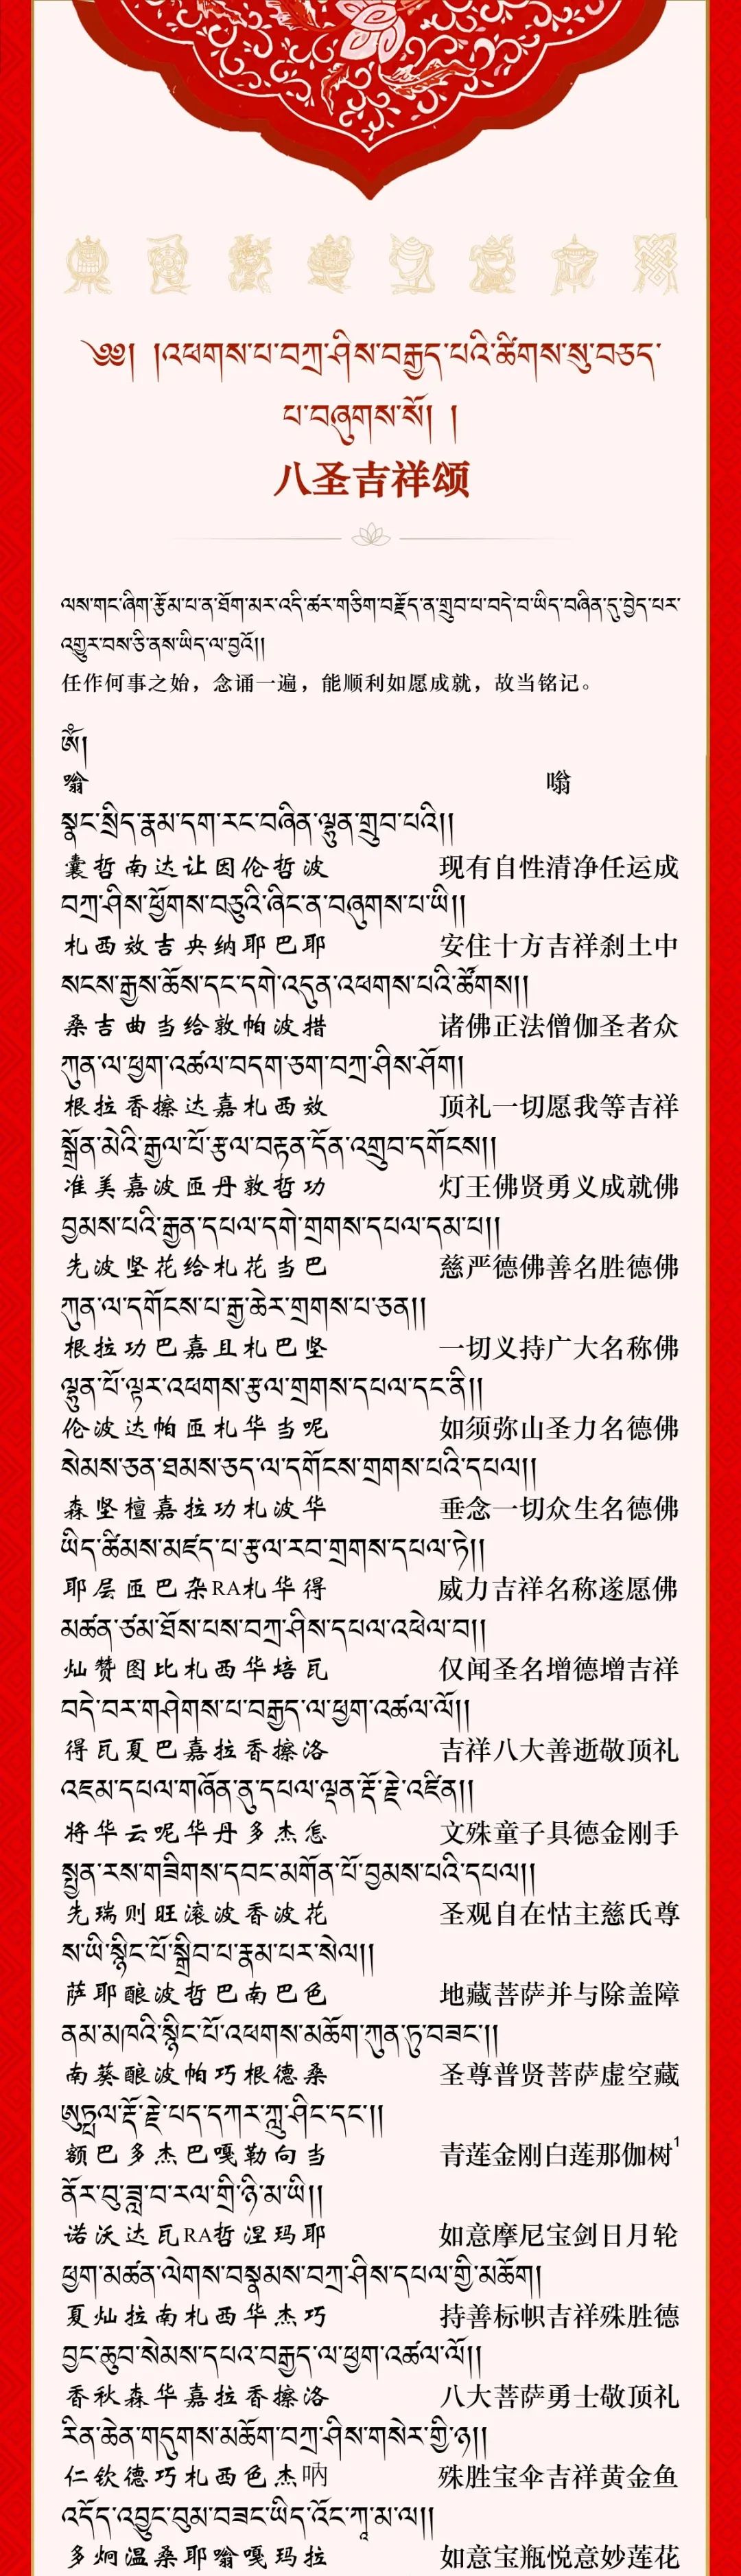 ༄༅། །འཕགས་པ་བཀྲ་ཤིས་བརྒྱད་པའི་ཚིགས་སུ་བཅད་
པ་བཞུགས་སོ། །
八圣吉祥颂
ལས་གང་ཞིག་རྩོམ་པ་ན་ཐོག་མར་འདི་ཚར་གཅིག་བརྗོད་ན་གྲུབ་པ་བདེ་བ་ཡིད་བཞིན་དུ་བྱེད་པར་
འགྱུར་བས་ཅི་ནས་ཡིད་ལ་བྱའོ།།
任作何事之始，念诵一遍，能顺利如愿成就，故当铭记。
ཨོཾ།
嗡 嗡
སྣང་སྲིད་རྣམ་དག་རང་བཞིན་ལྷུན་གྲུབ་པའི།།
囊哲南达让因伦哲波 现有自性清净任运成
བཀྲ་ཤིས་ཕྱོགས་བཅུའི་ཞིང་ན་བཞུགས་པ་ཡི།།
札西效吉央纳耶巴耶 安住十方吉祥刹土中
སངས་རྒྱས་ཆོས་དང་དགེ་འདུན་འཕགས་པའི་ཚོགས།།
桑吉曲当给敦帕波措 诸佛正法僧伽圣者众
ཀུན་ལ་ཕྱག་འཚལ་བདག་ཅག་བཀྲ་ཤིས་ཤོག།
根拉香擦达嘉札西效 顶礼一切愿我等吉祥
སྒྲོན་མེའི་རྒྱལ་པོ་རྩལ་བརྟན་དོན་འགྲུབ་དགོངས།།
准美嘉波匝丹敦哲功 灯王佛贤勇义成就佛
བྱམས་པའི་རྒྱན་དཔལ་དགེ་གྲགས་དཔལ་དམ་པ།།
先波坚花给札花当巴 慈严德佛善名胜德佛
ཀུན་ལ་དགོངས་པ་རྒྱ་ཆེར་གྲགས་པ་ཅན།།
根拉功巴嘉且札巴坚 一切义持广大名称佛
ལྷུན་པོ་ལྟར་འཕགས་རྩལ་གྲགས་དཔལ་དང་ནི།།
伦波达帕匝札华当呢 如须弥山圣力名德佛
སེམས་ཅན་ཐམས་ཅད་ལ་དགོངས་གྲགས་པའི་དཔལ།།
森坚檀嘉拉功札波华 垂念一切众生名德佛
ཡིད་ཚིམས་མཛད་པ་རྩལ་རབ་གྲགས་དཔལ་ཏེ།།
耶层匝巴杂RA札华得 威力吉祥名称遂愿佛
མཚན་ཙམ་ཐོས་པས་བཀྲ་ཤིས་དཔལ་འཕེལ་བ།།
灿赞图比札西华培瓦 仅闻圣名增德增吉祥
བདེ་བར་གཤེགས་པ་བརྒྱད་ལ་ཕྱག་འཚལ་ལོ།།
得瓦夏巴嘉拉香擦洛 吉祥八大善逝敬顶礼
འཇམ་དཔལ་གཞོན་ནུ་དཔལ་ལྡན་རྡོ་རྗེ་འཛིན།།
将华云呢华丹多杰怎 文殊童子具德金刚手
སྤྱན་རས་གཟིགས་དབང་མགོན་པོ་བྱམས་པའི་དཔལ།།
先瑞则旺滚波香波花 圣观自在怙主慈氏尊
ས་ཡི་སྙིང་པོ་སྒྲིབ་པ་རྣམ་པར་སེལ།།
萨耶酿波哲巴南巴色 地藏菩萨并与除盖障
ནམ་མཁའི་སྙིང་པོ་འཕགས་མཆོག་ཀུན་ཏུ་བཟང་།།
南葵酿波帕巧根德桑 圣尊普贤菩萨虚空藏
ཨུཏྤལ་རྡོ་རྗེ་པད་དཀར་ཀླུ་ཤིང་དང་།།
额巴多杰巴嘎勒向当 青莲金刚白莲那伽树1
ནོར་བུ་ཟླ་བ་རལ་གྲི་ཉི་མ་ཡི།།
诺沃达瓦RA哲涅玛耶 如意摩尼宝剑日月轮
ཕྱག་མཚན་ལེགས་བསྣམས་བཀྲ་ཤིས་དཔལ་གྱི་མཆོག།
夏灿拉南札西华杰巧 持善标帜吉祥殊胜德
བྱང་ཆུབ་སེམས་དཔའ་བརྒྱད་ལ་ཕྱག་འཚལ་ལོ།།
香秋森华嘉拉香擦洛 八大菩萨勇士敬顶礼
རིན་ཆེན་གདུགས་མཆོག་བཀྲ་ཤིས་གསེར་གྱི་ཉ།།
仁钦德巧札西色杰呐 殊胜宝伞吉祥黄金鱼
འདོད་འབྱུང་བུམ་བཟང་ཡིད་འོང་ཀཱ་མ་ལ།།
多炯温桑耶嗡嘎玛拉 如意宝瓶悦意妙莲花